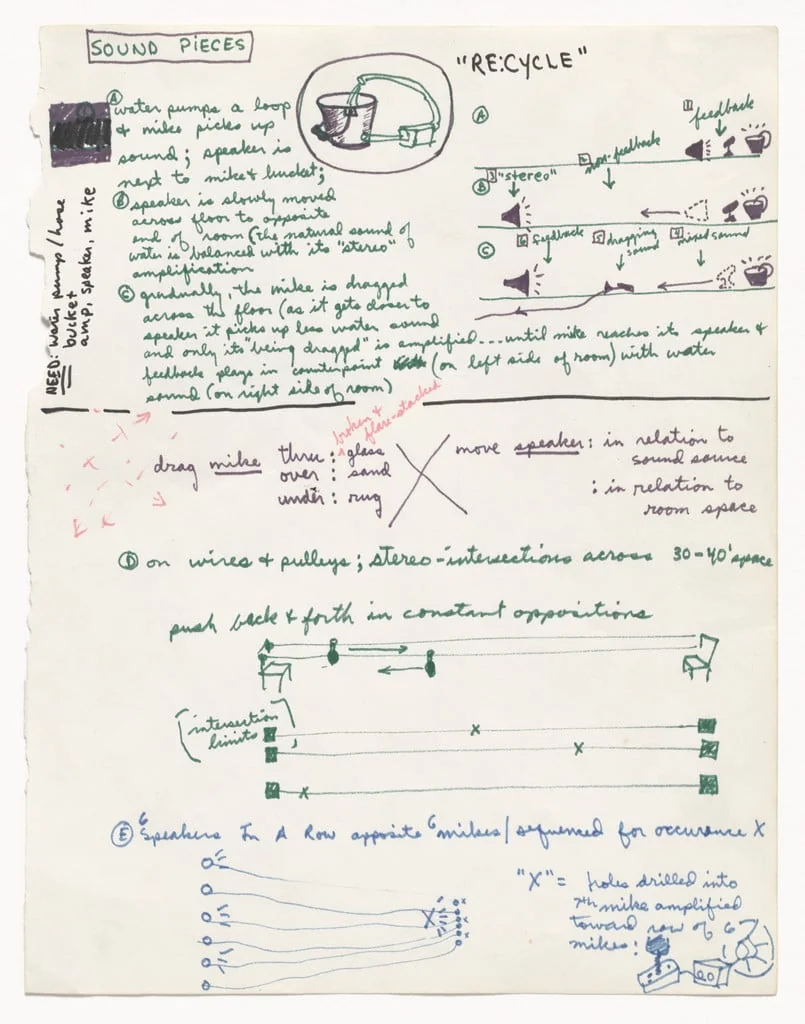 SOUND PIECES
"RE:CYCLE"
NEED: water pump/hose
bucket
amp, speaker, mike
A
water pumps a loop
& mike picks up
sound; speaker is
next to mike & bucket;
B
speaker is slowly moved
across floor to opposite
end of room (the natural sound of
water is balanced with its "stereo"
amplification
C
gradually, the mike is dragged
across the floor (as it gets closer to
speaker it picks up less water sound
and only its "being dragged" is amplified...until mike reaches its speaker &
feedback plays in counterpoint (on left side of room) with water
sound (on right side of room)
A
1 feedback
2 non-feedback
3 "stereo"
B
C
6 feedback
5 dragging
sound
4 mixed sound
broken &
plate-stacked
drag mike thru: glass
over: sand
under: rug
move speaker: in relation to
sound source
: in relation to
room space
D on wires & pulleys; stereo-intersections across 30-40' space
push back & forth in constant oppositions
(intersection
limits)
x
x
x
E 6 Speakers In A Row opposite 6 mikes/sequenced for occurance X
X
"X" = holes drilled into
7th mike amplified
toward row of 6
mikes: